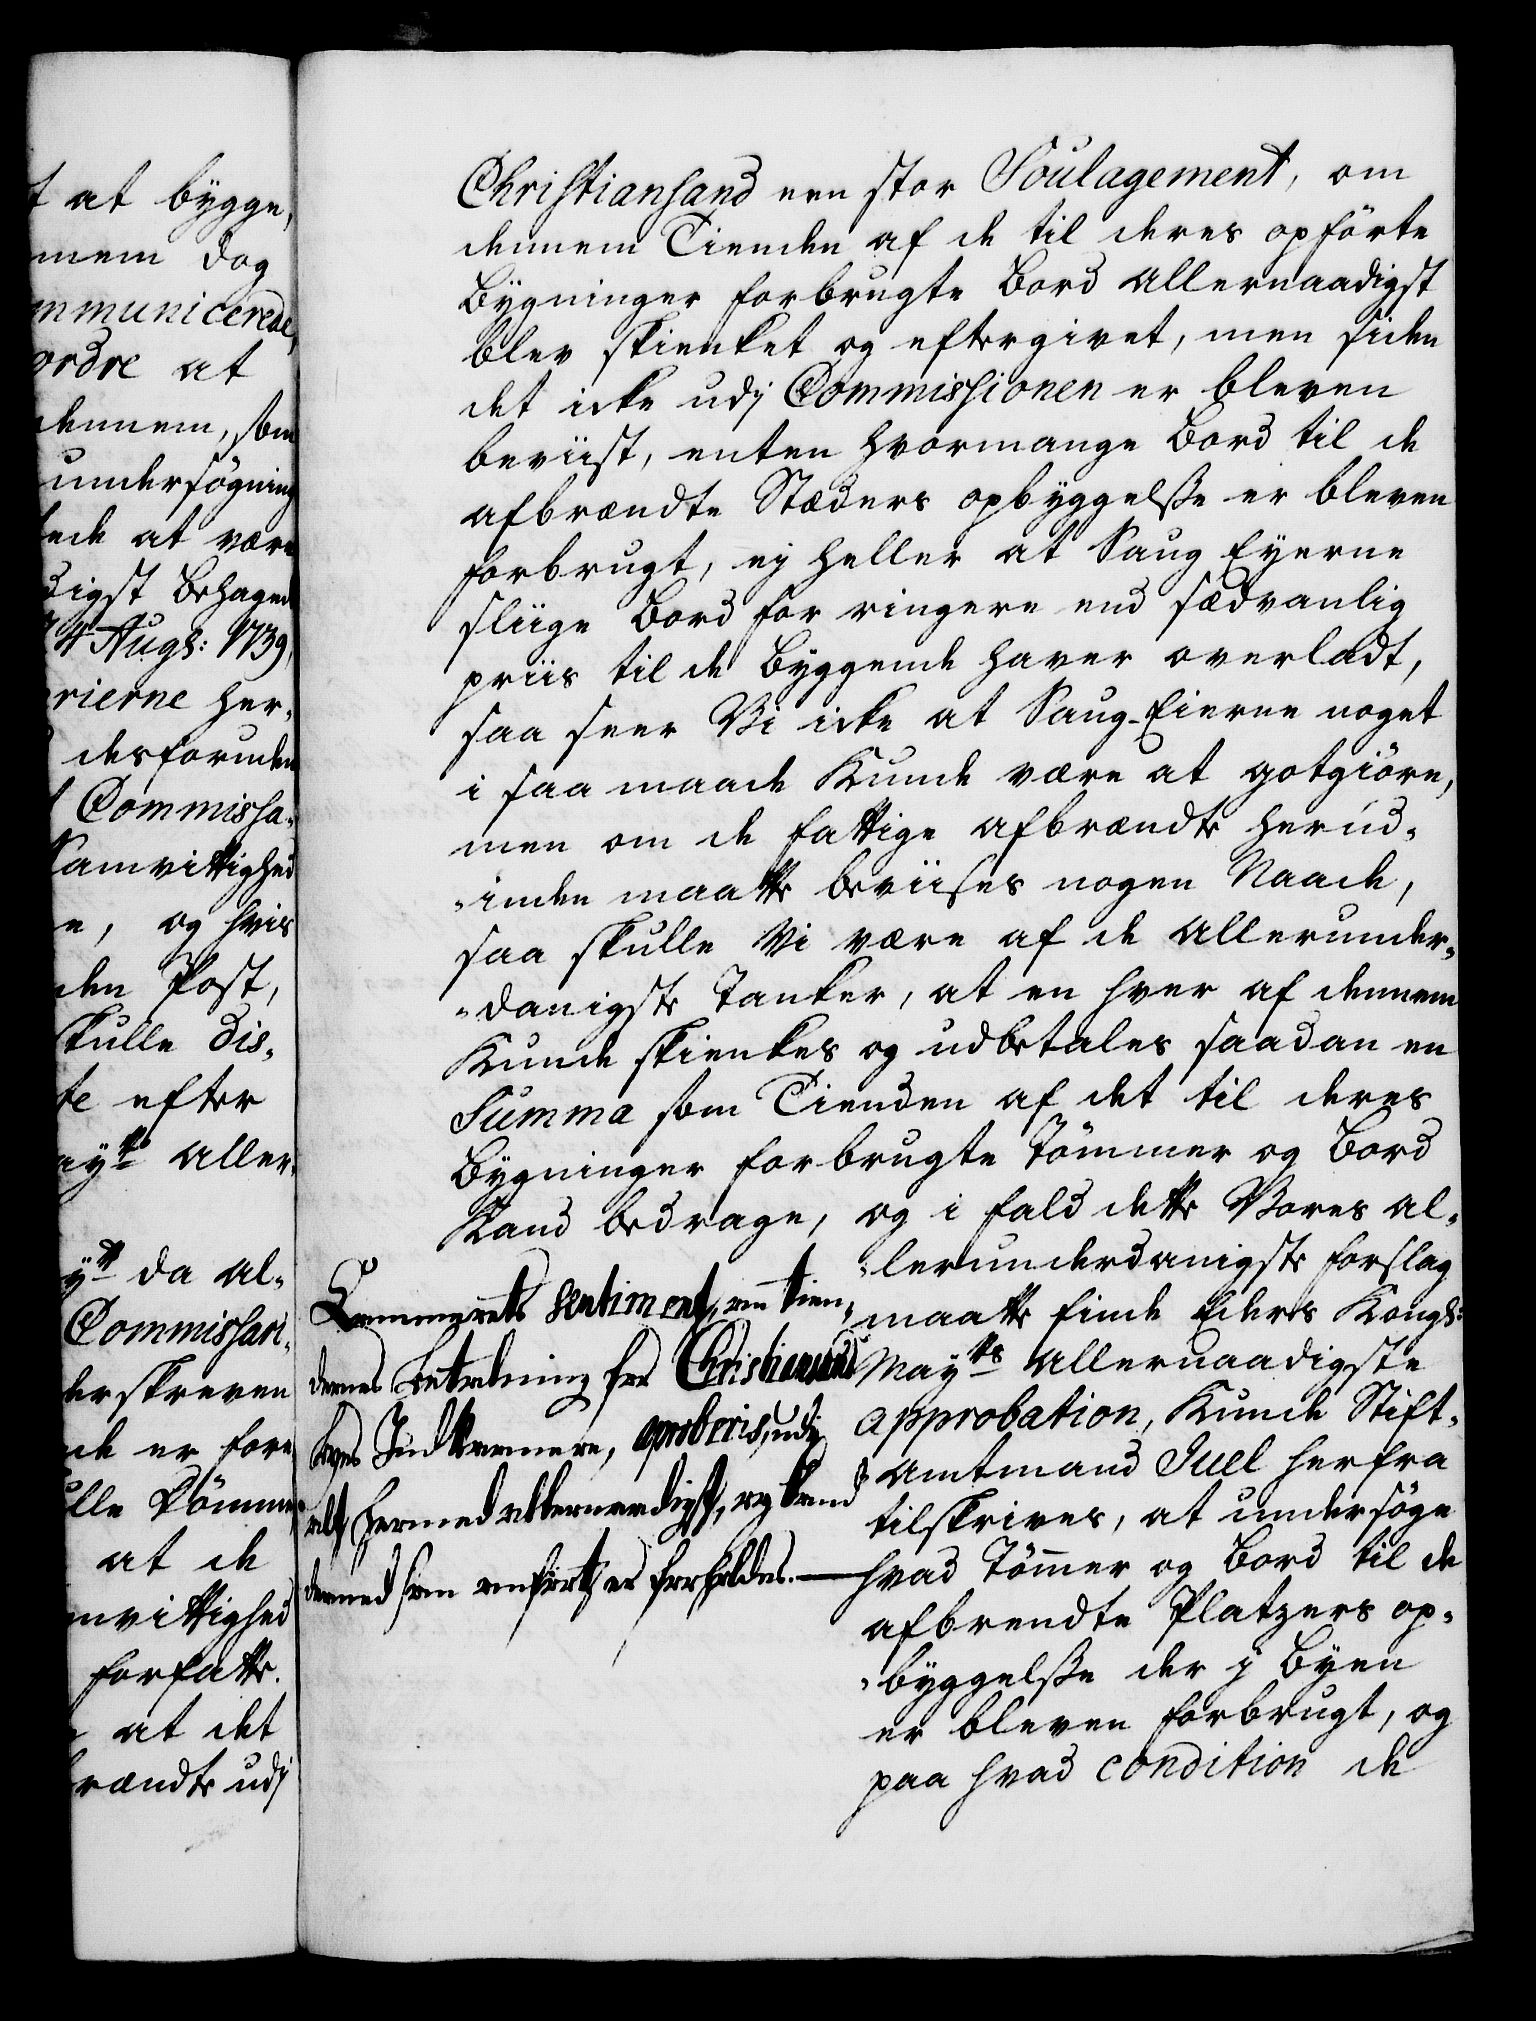 t at bÿgge,
mmunicerede,
ordre at
dennem, som
undersögning
at være
digst behaged
4 Aug: 1739,
rierne her-
desforuden
Commissa-
Samvittighed
e, og hvis
den Post,
skulle dis-
te efter
aÿts aller-
ÿts da al-
Commissari-
derskreven
de er fore
ulle dömme
at de
mvittighed
forfatte.
at det
brændte udj
Christiansand een stor Soulagement, om
dennem Tienden af de til deres opförte
Bÿgninger forbrugte Bord allernaadigst
blev skienket og eftergivet, men siden
det icke udj Commissionen er bleven
beviist, enten hvormange Bord til de
afbrændte Stæders opbÿggelsse er bleven
forbrugt, eÿ heller at Saug Eÿerne
sliige Bord for ringere end sædvanlig
priis til de Bÿggende haver overladt,
saa seer Vi icke at Saug-Eierne noget
i saa maade kunde være at gotgiöre,
men om de fattige afbrændte herud-
-inden maatte beviises nogen Naade,
saa skulle Vi være af de allerunder-
-danigste Tanker, at en hver af dennem
kunde skienkes og udbetales saadan en
Summa som Tienden af det til deres
Bÿgninger forbrugte Tömmer og Bord
kand bedrage, og i fald dette Vores al-
-lerunderdanigste forslag
maatte finde Eders Kongl:
Maÿts allernaadigste
approbation, kunde Stift-
amtmand Juel herfra
tilskrives, at undersöge
hvad Tömer og Bord til de
afbrendte Platzers op-
-bÿggelsse der i Bÿen
er bleven forbrugt, og
paa hvad condition de
Cammerets sentiment, om tien-
dernes betalning for Christiansand
byes Indvaanere, aproberis, udj
alt hermed allernaadigst, og kand
dermed som anfört er forholdes.